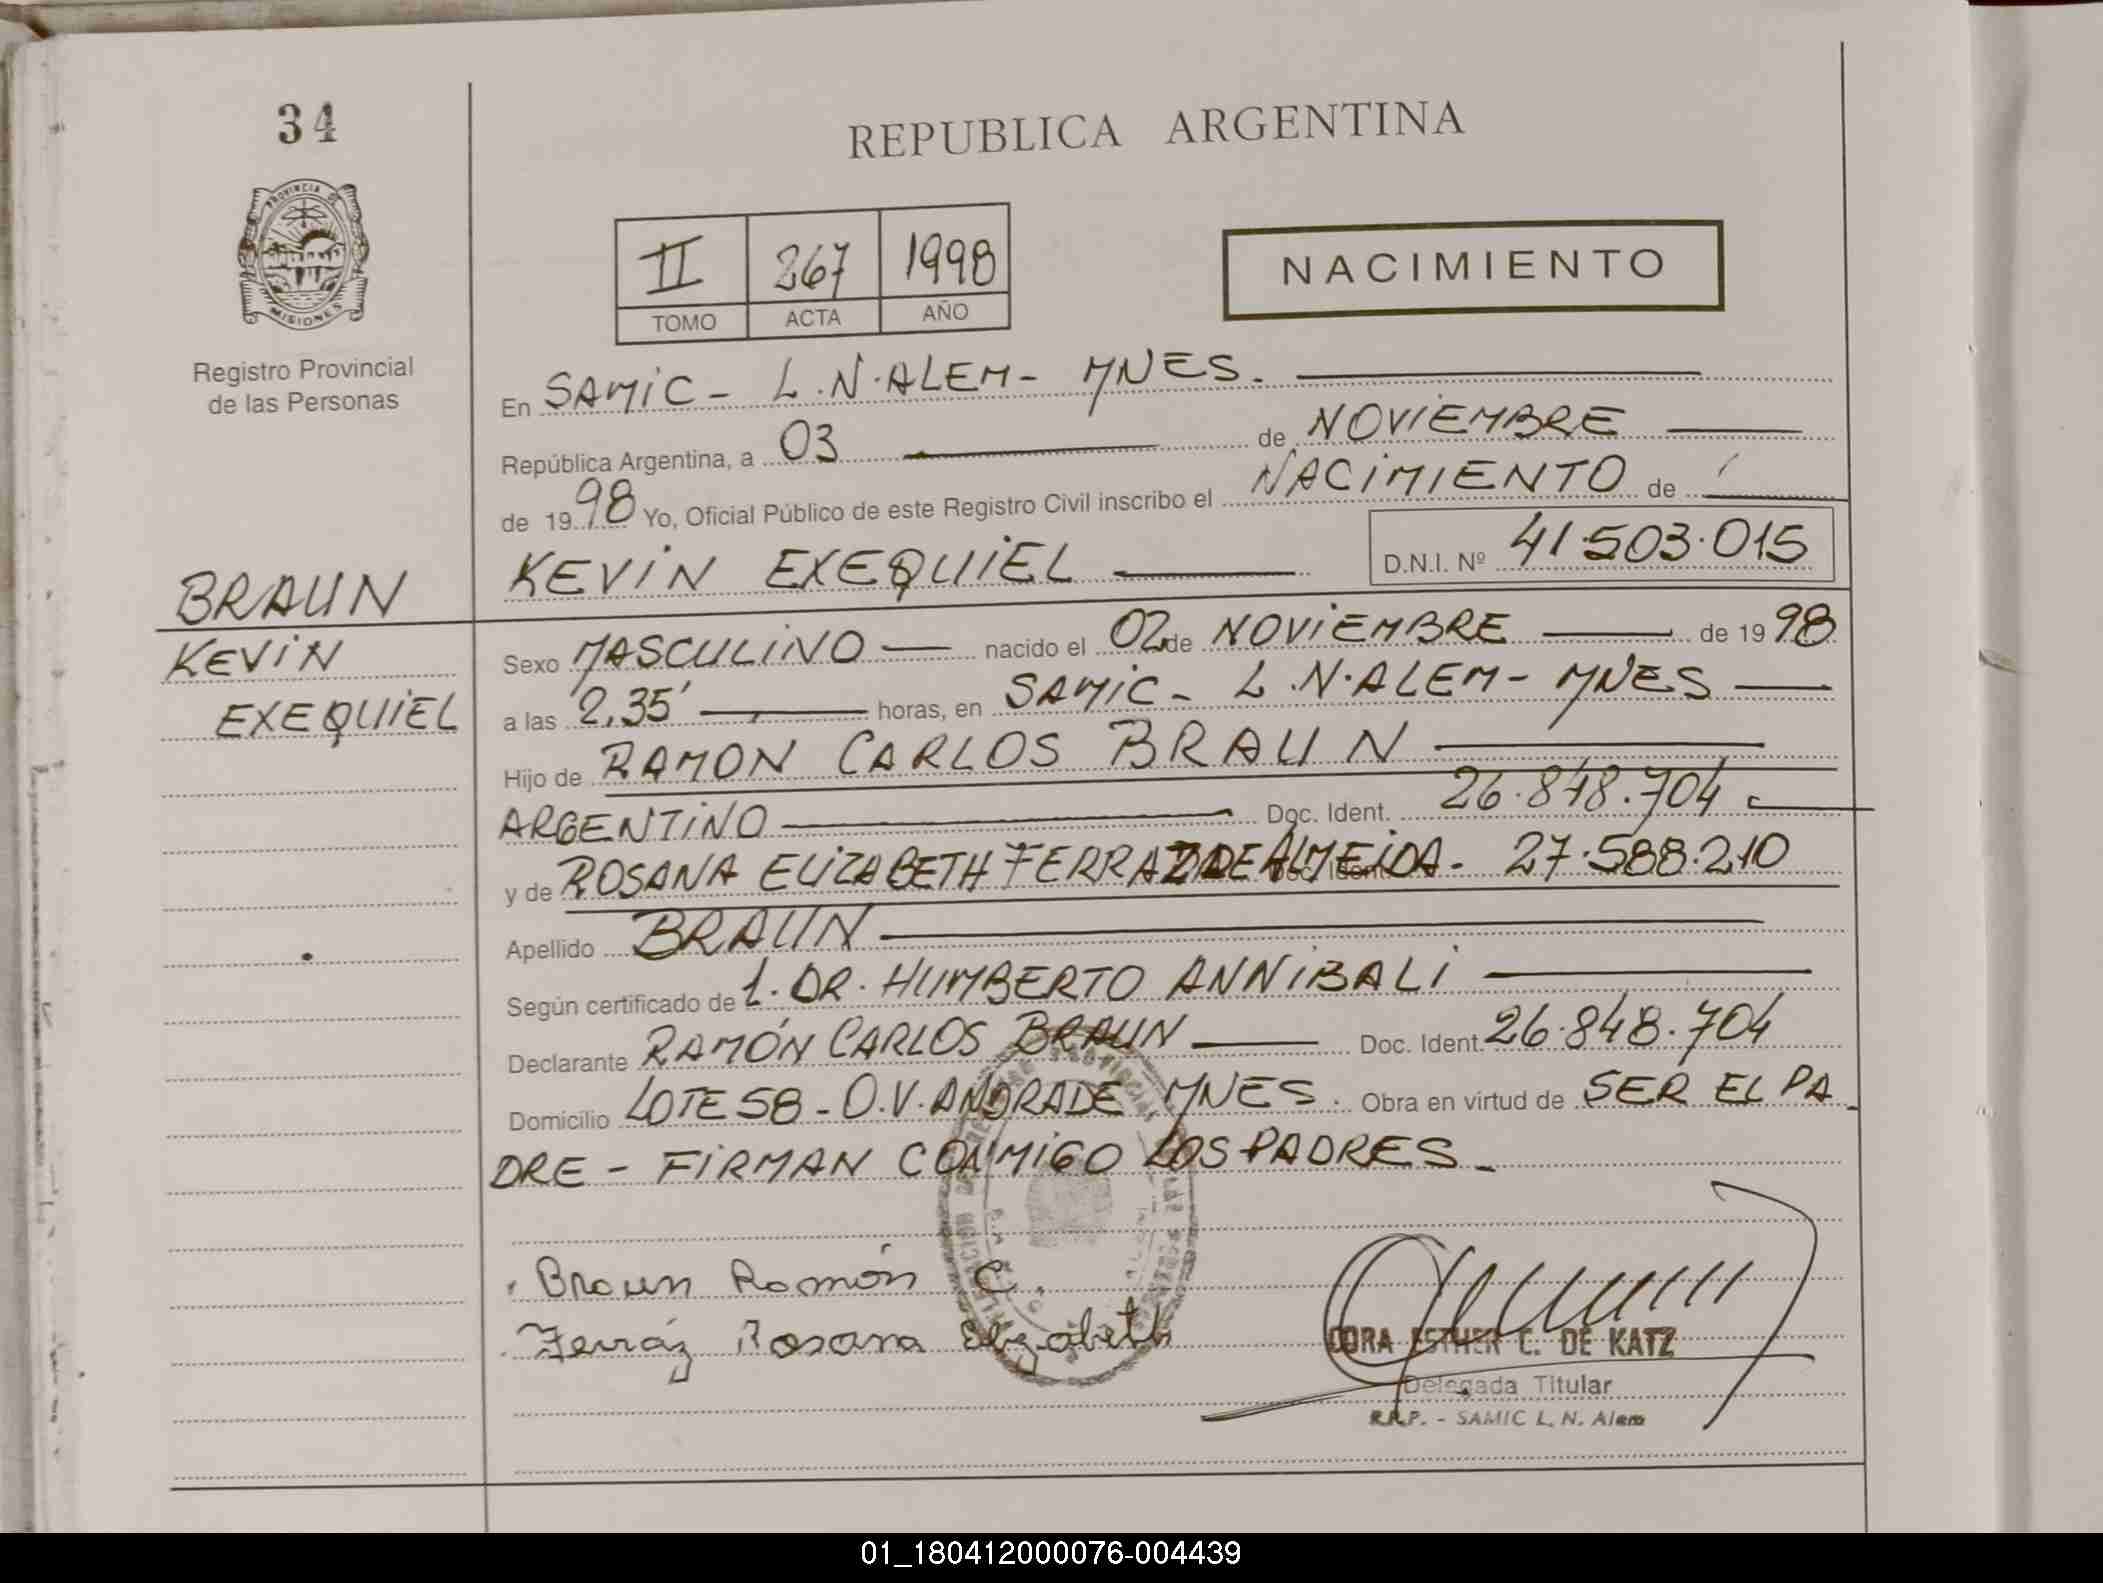 34
REPUBLICA ARGENTINA
PROVINCIA DE
MISIONES
Registro Provincial
de las Personas
II 267 1998
TOMO ACTA AÑO
NACIMIENTO
En SAMIC - L.N.ALEM - MNES.
República Argentina, a 03 de NOVIEMBRE
de 1998 Yo, Oficial Público de este Registro Civil inscribo el NACIMIENTO de
KEVIN EXEQUIEL D.N.I. Nº 41.503.015
BRAUN
KEVIN
EXEQUIEL
Sexo MASCULINO nacido el 02 de NOVIEMBRE de 1998
a las 2,35' horas, en SAMIC - L.N.ALEM - MNES
Hijo de RAMON CARLOS BRAUN
ARGENTINO Doc. Ident. 26.848.704
y de ROSANA ELIZABETH FERRAZ DE ALMEIDA - 27.588.210
Apellido BRAUN
Según certificado de 1. DR. HUMBERTO ANNIBALI
Declarante RAMÓN CARLOS BRAUN Doc. Ident. 26.848.704
Domicilio LOTE 58 - O.V. ANDRADE MNES. Obra en virtud de SER EL PA
DRE - FIRMAN CONMIGO LOS PADRES -
Braun Ramón C.
Ferráz Rosana Elizabeth
DORA ESTHER C. DE KATZ
Delegada Titular
R.P.P. - SAMIC L. N. Alem
01_180412000076-004439